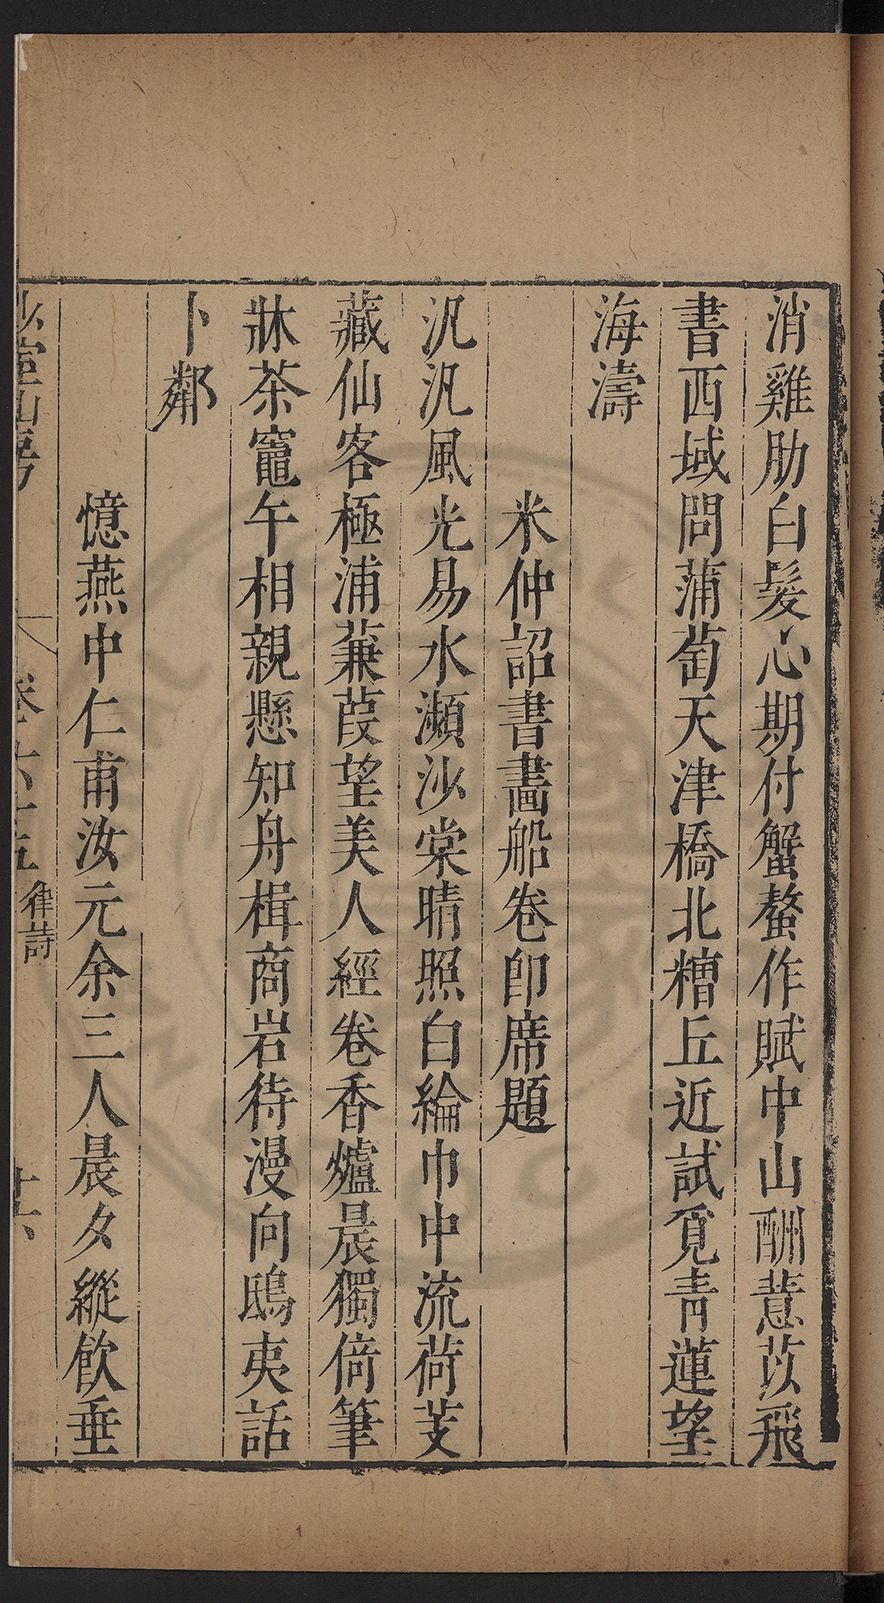 消雞肋白髮心期付蟹螯作賦中山酬薏苡飛
書西域問蒲萄天津橋北糟丘近試覓青蓮望
海濤
米仲詔書畵船卷卽席題
汎汎風光易水瀕沙棠晴照白綸巾中流荷芰
藏仙客極浦蒹葭望美人經卷香爐晨獨倚筆
牀茶竈午相親懸知舟楫商岩待漫向鴟夷話
卜鄰
憶燕中仁甫汝元余三人晨夕縱飲垂
少室山房
卷六十五
律詩
十六